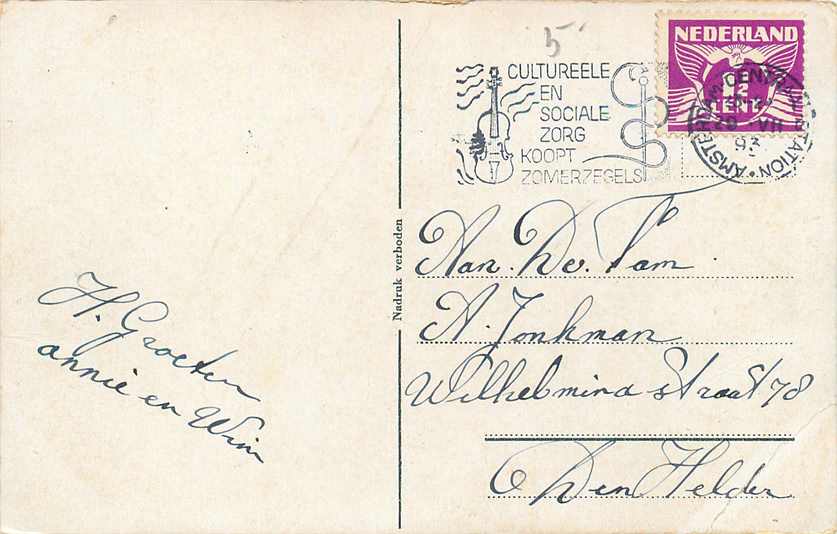 5
CULTUREELE
EN
SOCIALE
ZORG
KOOPT
ZOMERZEGELS
NEDERLAND
CENT
AMSTERDAM CENTRAAL STATION
29 VII
193
Nadruk verboden
H. Groeten
annie en Wim
Aan. De. Fam
A. Jonkman
Wilhelmina straat 78
Den Helder